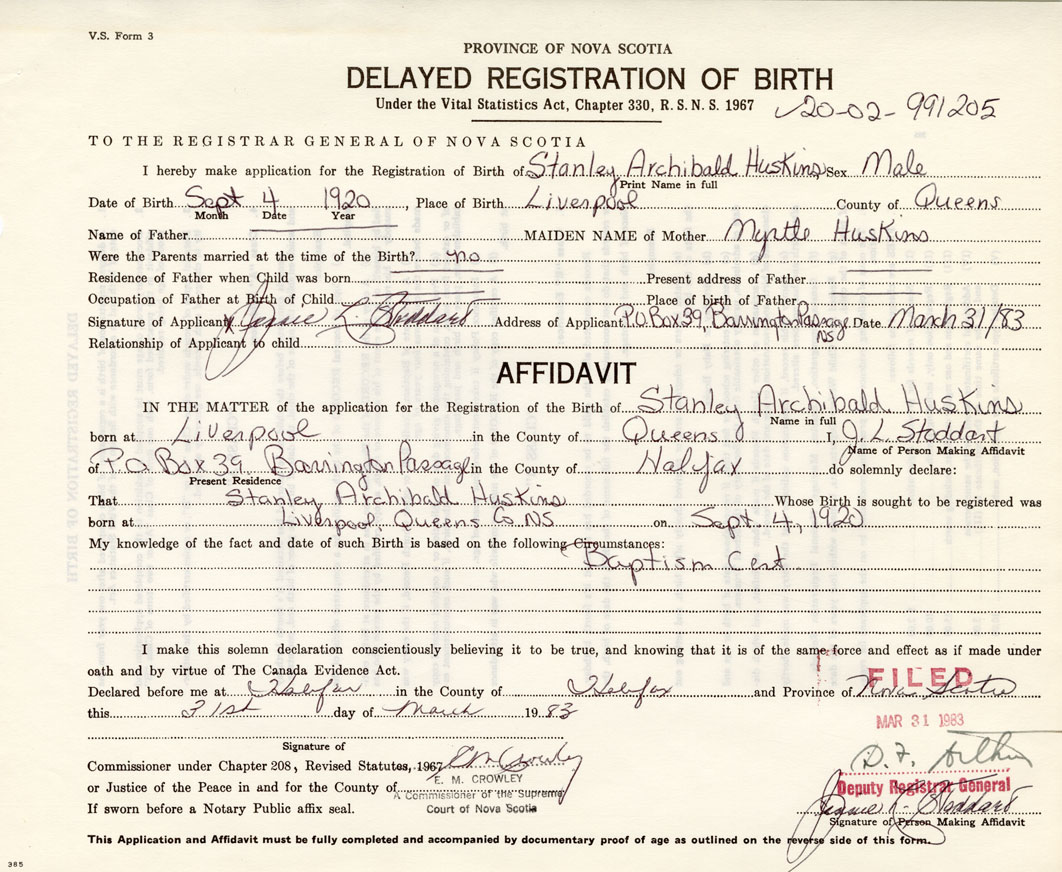 V.S. Form 3
PROVINCE OF NOVA SCOTIA
DELAYED REGISTRATION OF BIRTH
Under the Vital Statistics Act, Chapter 330, R.S.N.S. 1967
20-02-991205
TO THE REGISTRAR GENERAL OF NOVA SCOTIA
I hereby make application for the Registration of Birth of Stanley Archibald Huskins Sex Male
Print Name in full
Date of Birth Sept 4 1920, Place of Birth Liverpool County of Queens
Month Date Year
Name of Father MAIDEN NAME of Mother Myrtle Huskins
Were the Parents married at the time of the Birth? no
Residence of Father when Child was born Present address of Father
Occupation of Father at Birth of Child Place of birth of Father
Signature of Applicant X Jennie L. Stoddard Address of Applicant P.O. Box 39, Barrington Passage NS Date March 31/83
Relationship of Applicant to child
AFFIDAVIT
IN THE MATTER of the application for the Registration of the Birth of Stanley Archibald Huskins
Name in full
born at Liverpool in the County of Queens I, J. L. Stoddart
Name of Person Making Affidavit
of P.O. Box 39, Barrington Passage in the County of Halifax do solemnly declare:
Present Residence
That Stanley Archibald Huskins Whose Birth is sought to be registered was
born at Liverpool, Queens Co. NS on Sept. 4, 1920
My knowledge of the fact and date of such Birth is based on the following Circumstances:
Baptism Cert
I make this solemn declaration conscientiously believing it to be true, and knowing that it is of the same force and effect as if made under
oath and by virtue of The Canada Evidence Act.
FILED
Declared before me at Halifax in the County of Halifax and Province of Nova Scotia
this 31st day of March 1983
MAR 31 1983
Signature of
Commissioner under Chapter 208, Revised Statutes, 1967 E M Crowley
E. M. CROWLEY
or Justice of the Peace in and for the County of
A Commissioner of the Supreme
Court of Nova Scotia
If sworn before a Notary Public affix seal.
D. F. Arthur
Deputy Registrar General
Jennie L. Stoddard
Signature of Person Making Affidavit
This Application and Affidavit must be fully completed and accompanied by documentary proof of age as outlined on the reverse side of this form.
385